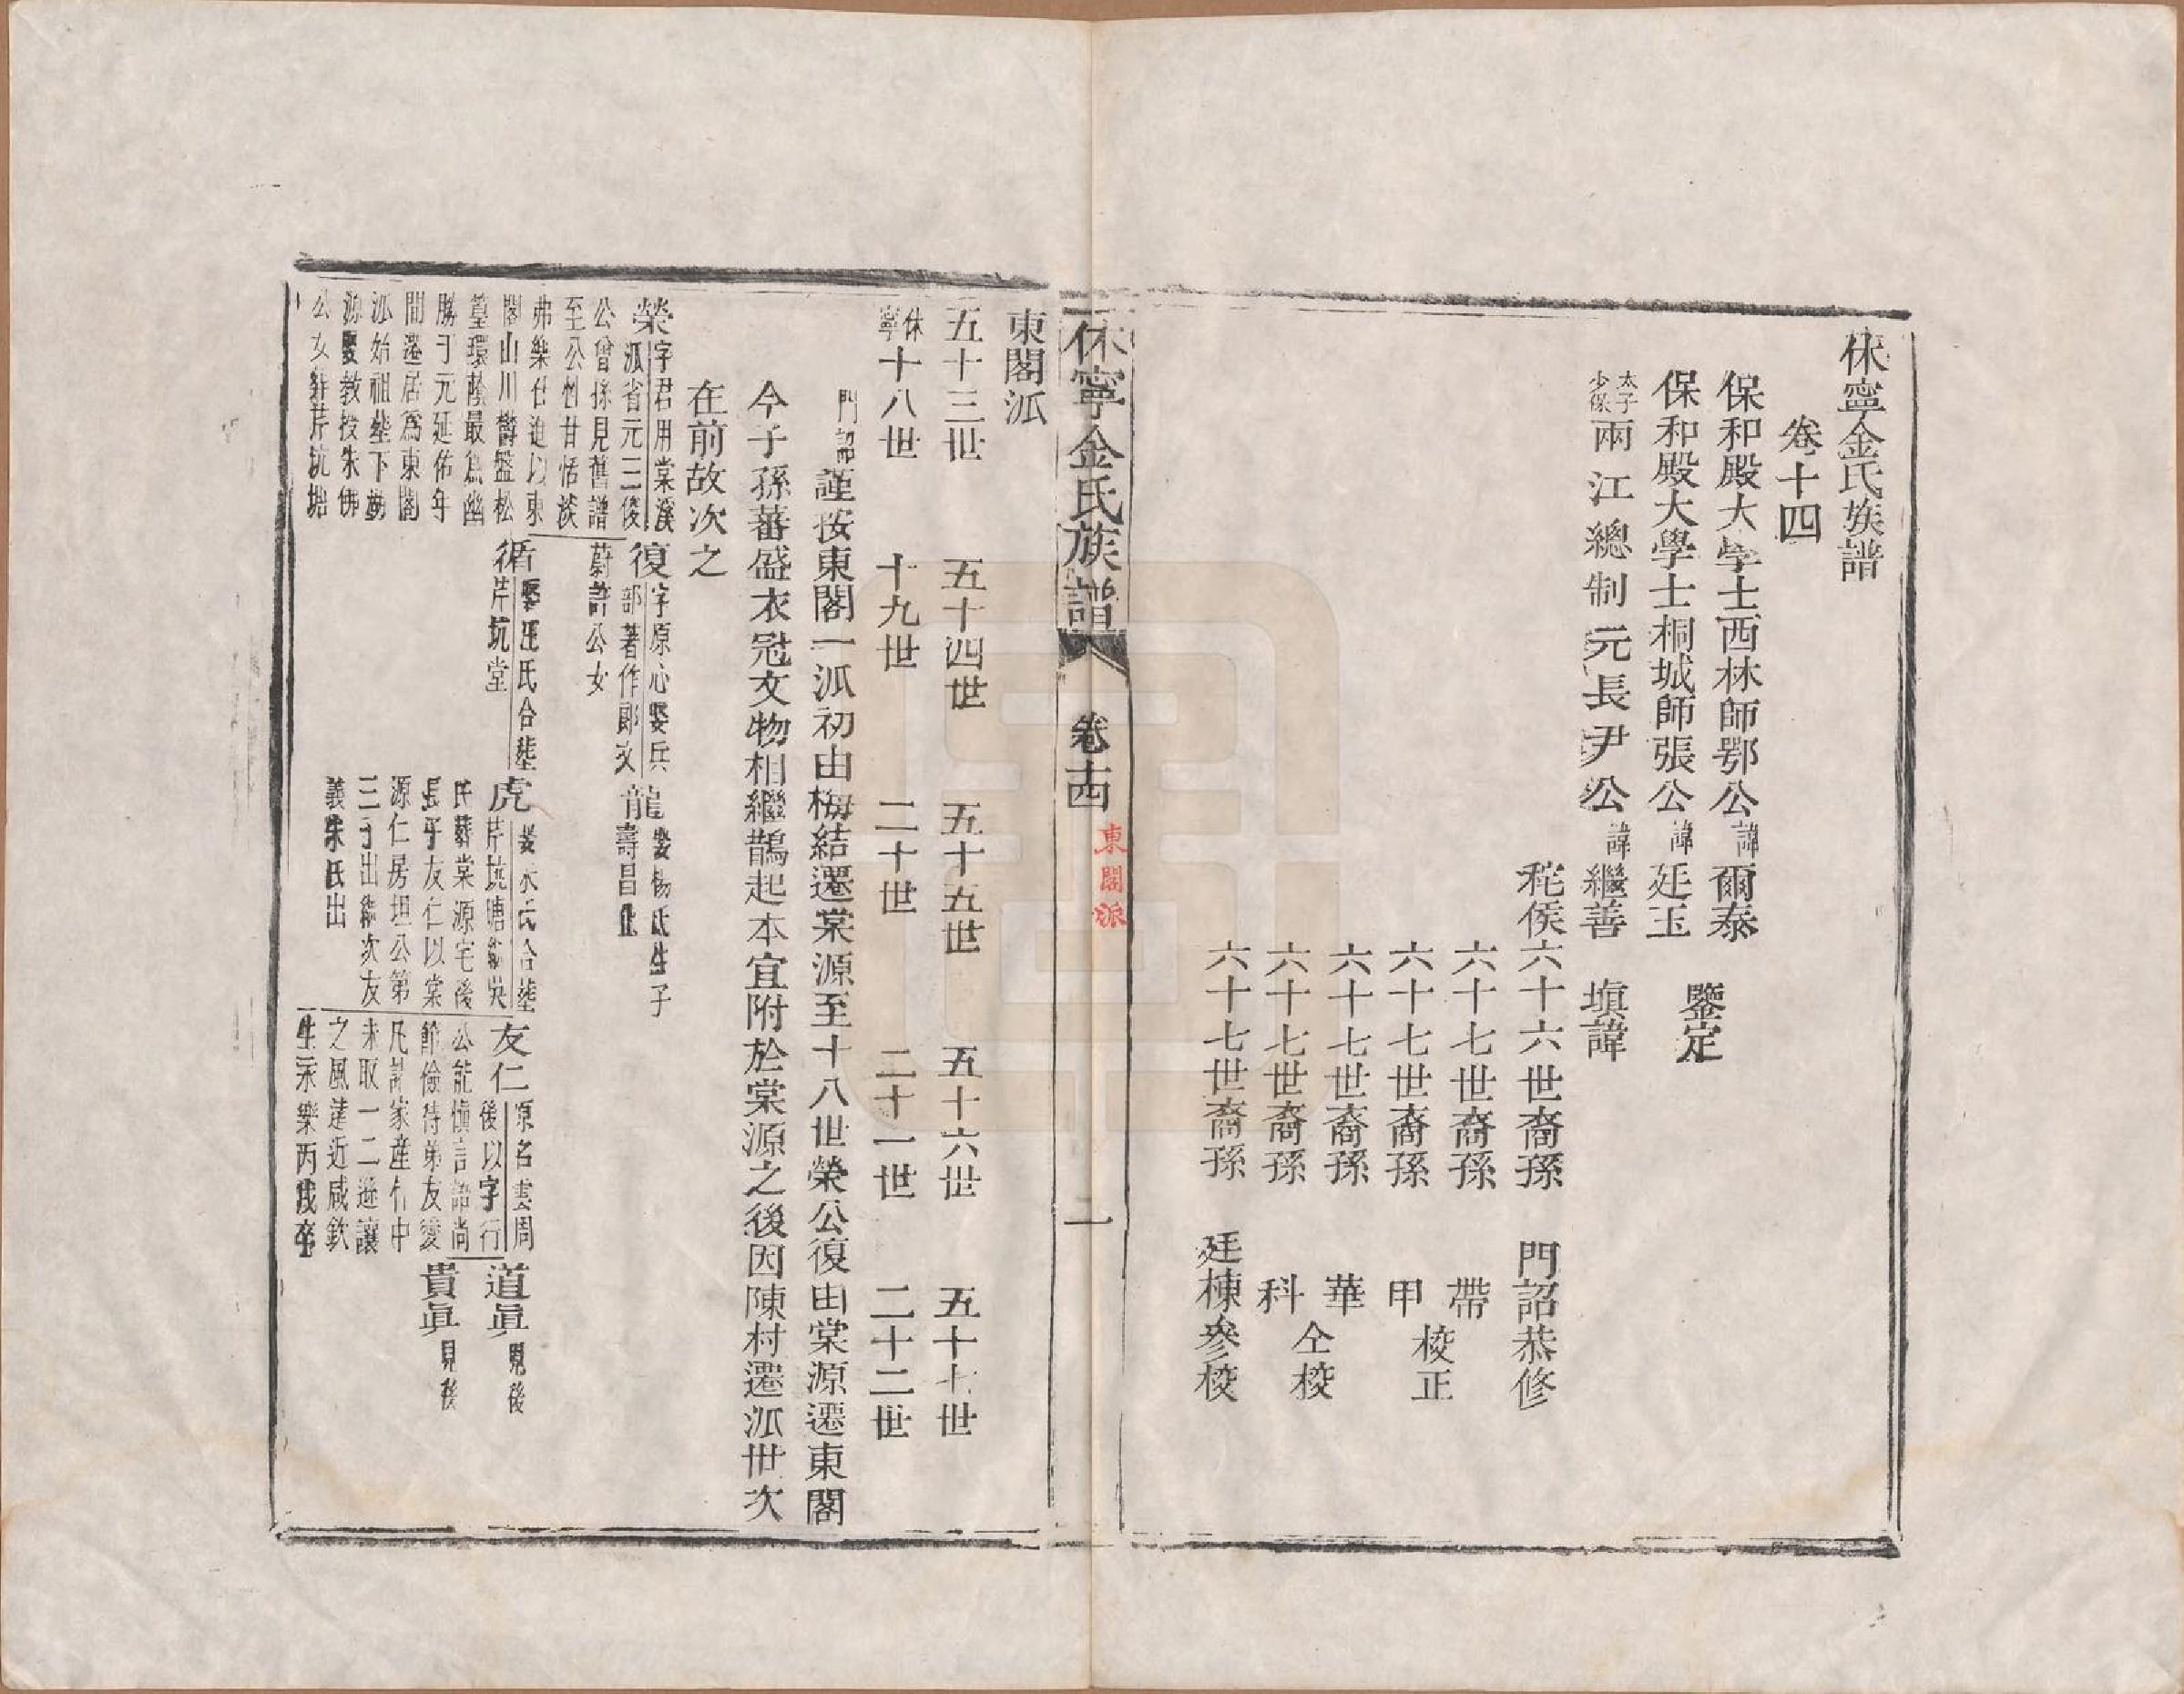 休寧金氏族譜
卷十四
保和殿大學士西林師鄂公諱爾泰
保和殿大學士桐城師張公諱廷玉
鑒定
太子少保兩江總制元長尹公諱繼善 填諱
秺侯六十六世裔孫 門詔恭修
六十七世裔孫 帶
六十七世裔孫 甲
校正
六十七世裔孫 華
六十七世裔孫 科
仝校
六十七世裔孫 廷棟參校
休寧金氏族譜 卷十四 東閣派 二
東閣派
五十三世 五十四世 五十五世 五十六世 五十七世
休寧十八世 十九世 二十世 二十一世 二十二世
門詔謹按東閣一派初由梅結遷棠源至十八世榮公復由棠源遷東閣
今子孫蕃盛衣冠文物相繼鵲起本宜附於棠源之後因陳村遷派世次
在前故次之
榮字君用棠溪
派省元三俊
公曾孫見舊譜
至公性甘恬淡
弗樂仕進以東
閣山川欝盤松
篁環蔭最爲幽
勝于元延佑年
間遷居爲東閣
派始祖塋下塢
源娶教授朱佛
公女葬芹坑塘
復字原心娶兵
部著作郎汝
蔚許公女
循娶汪氏合塟
芹坑堂
龍娶楊氏生子
壽昌止
虎娶朱氏合塟
芹坑塘繼吳
氏葬棠源宅後
長子友仁以棠
源仁房坦公第
三子出繼次友
義朱氏出
友仁原名雲周
後以字行
公能慎言語尚
節儉待弟友愛
凡諸家產什中
未取一二遜讓
之風遠近咸欽
生永樂丙戌卒
道眞見後
貴眞見後